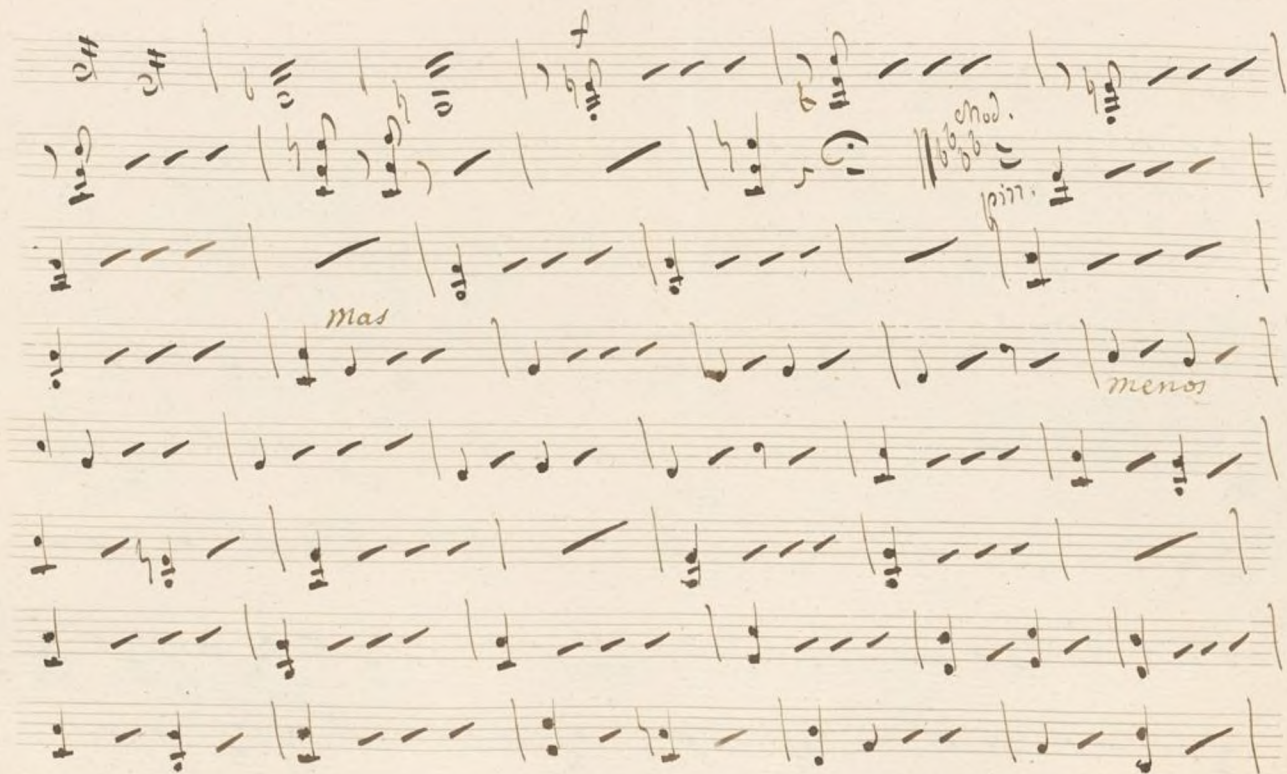 f
Mod.
pizz.
mas
menos